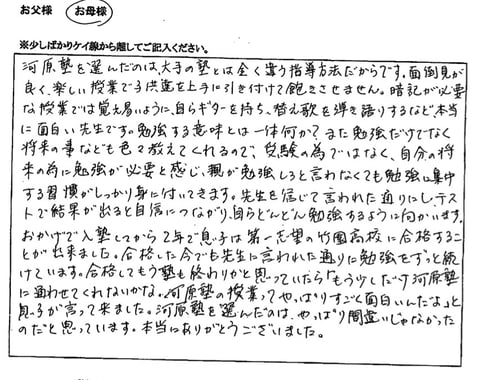 お父様 お母様
※少しばかりケイ線から超してご記入ください。
河原塾を選んだのは、大手の塾とは全く違う指導方法だからです。面倒見が
良く、楽しい授業で子供達を上手に引き付けて飽きさせません。暗記が必要
な授業では覚え易いように、自らギターを持ち、替え歌を弾き語りするなど本当
に面白い先生です。勉強する意味とは一体何か？また勉強だけでなく
将来の事なども色々教えてくれるので、受験の為ではなく、自分の将
来の為に勉強が必要と感じ、親が勉強しろと言わなくても勉強に集中
する習慣がしっかり身に付いてきます。先生を信じて言われた通りにし、テ
ストで結果が出ると自信につながり、自らどんどん勉強するように向かいます。
おかげで入塾してから2年で息子は第一志望の竹園高校に合格するこ
とが出来ました。合格した今でも先生に言われた通りに勉強をずっと続
けています。合格してもう塾も終わりかと思っていたら「もう少しだけ河原塾
に通わせてくれないかな。河原塾の授業ってやっぱりすごく面白いんだよ」と
息子が言って来ました。河原塾を選んだのは、やっぱり間違いじゃなかった
のだと思っています。本当にありがとうございました。